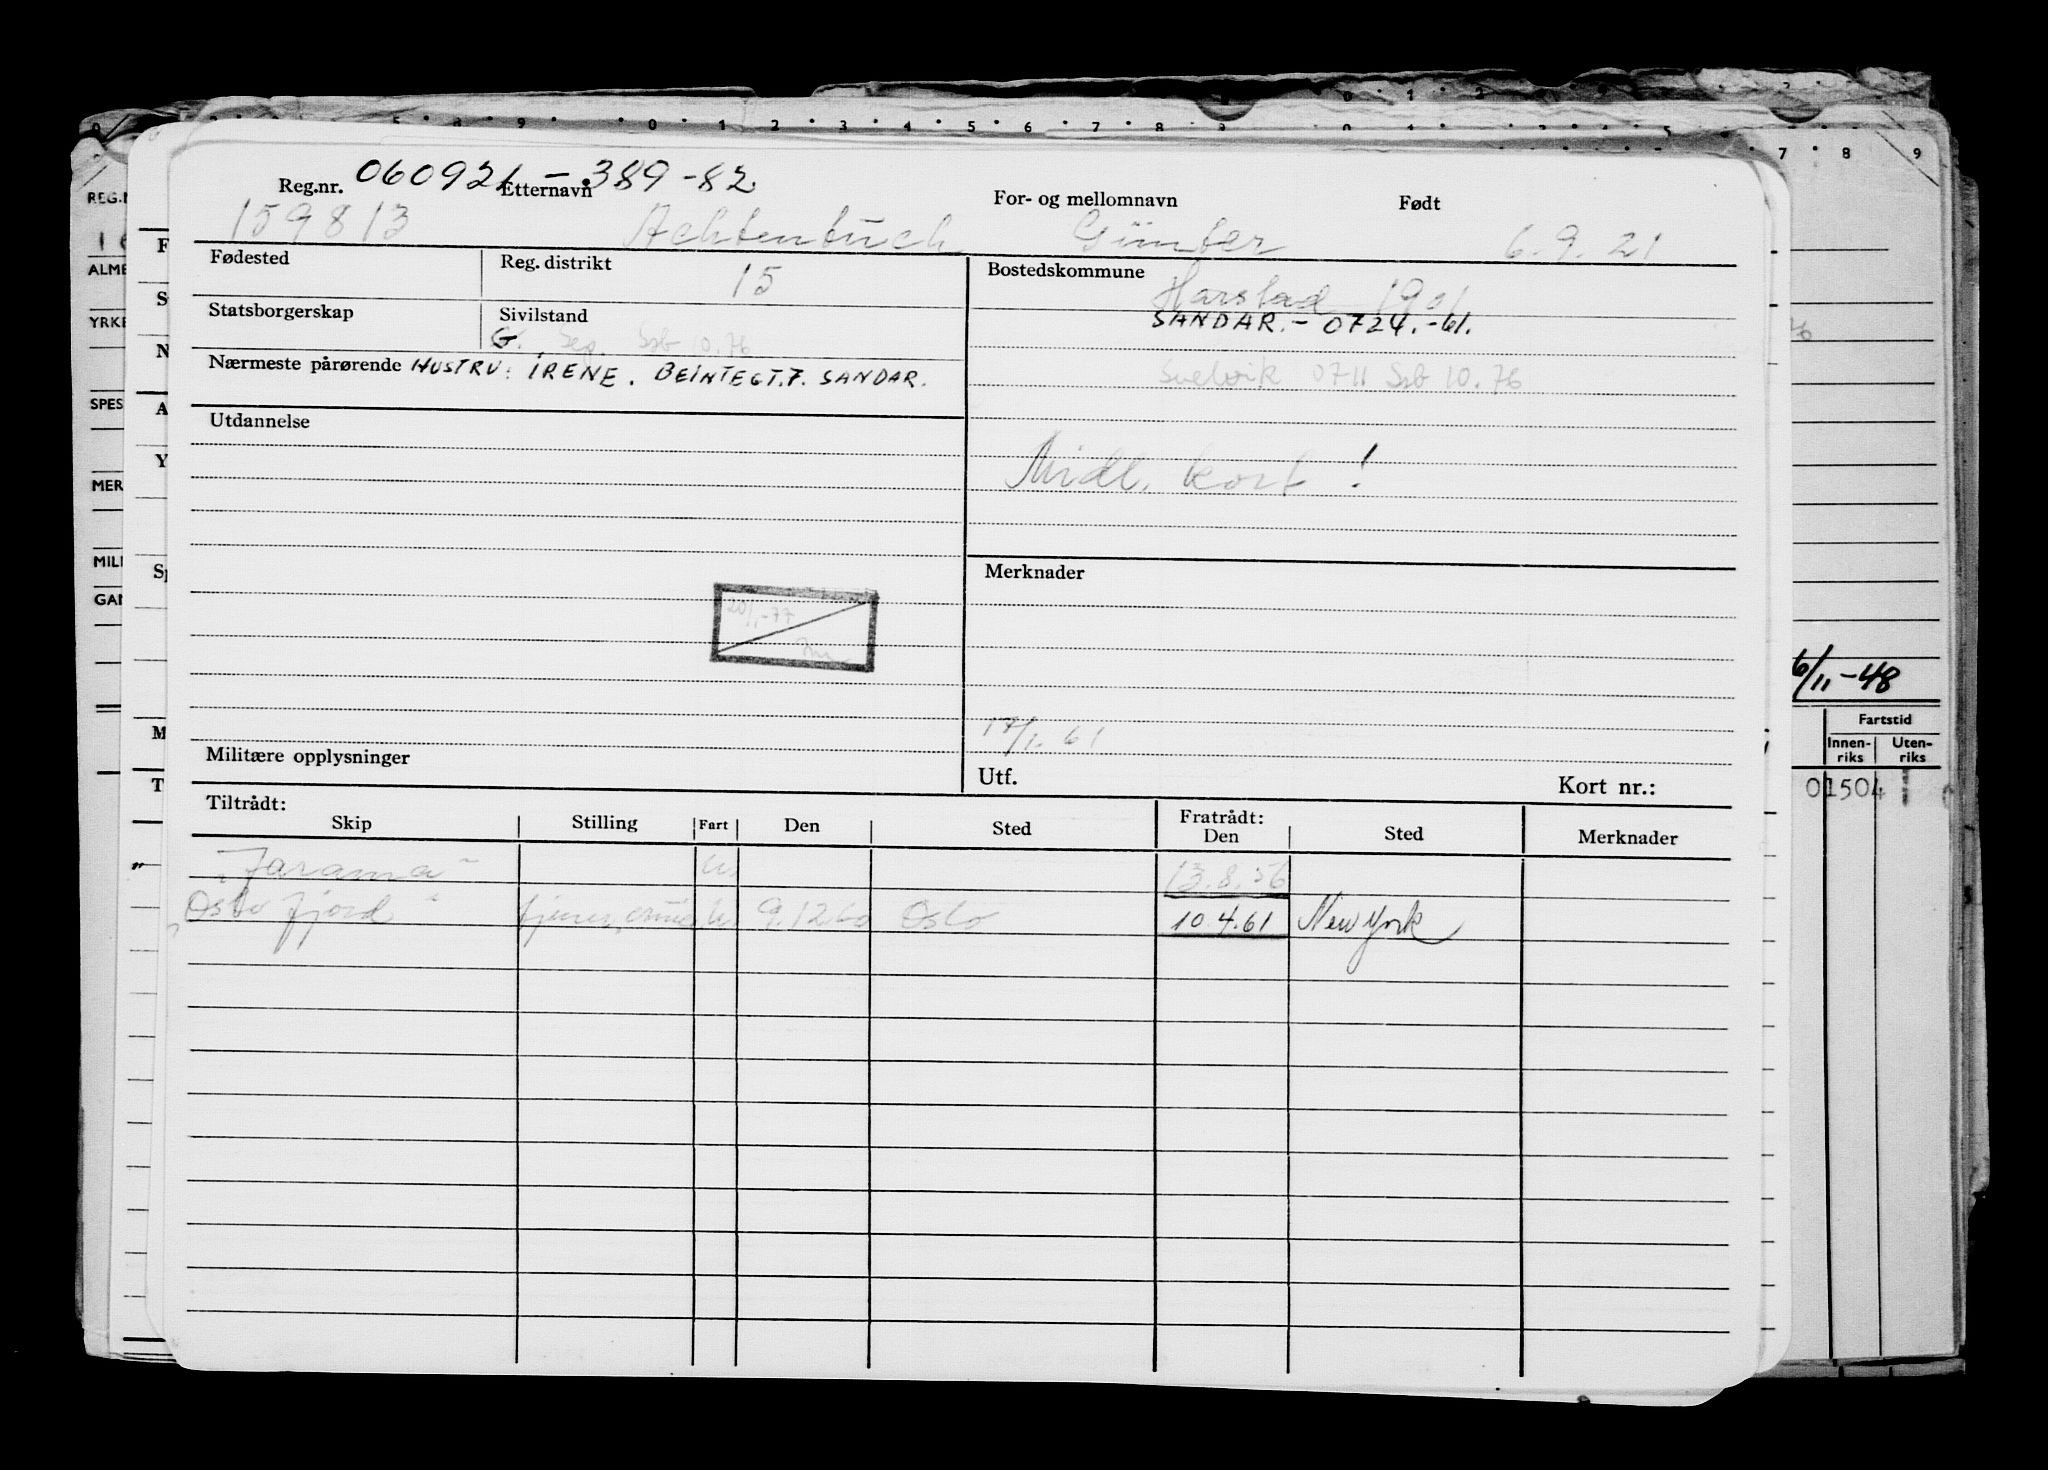 060921 - 389-82
Reg.nr. Etternavn For- og mellomnavn Født
159813 Achtenbuch Günter 6.9.21
Fødested Reg. distrikt 15 Bostedskommune Harstad 1901
SANDAR. - 0724.-61.
Statsborgerskap Sivilstand
G. Sep. Ssb 10.76
Nærmeste pårørende HUSTRU: IRENE. BEINTEGT.7. SANDAR.
Svelvik 0711 Ssb 10.76
Utdannelse
Midl. kort!
Merknader
20/1-77
17/1.61
Militære opplysninger Utf. Kort nr.:
Tiltrådt: Fratrådt:
Skip Stilling Fart Den Sted Den Sted Merknader
"Jarama" u. 13.8.56
"Oslofjord" u. 9.12.60 Oslo 10.4.61 New York
REG.N
ALME
YRKE
SPES
MER
MILI
GAN
F
S
N
A
Y
Sp
M
T
6/11-48
Fartstid
Innen-riks Uten-riks
01504